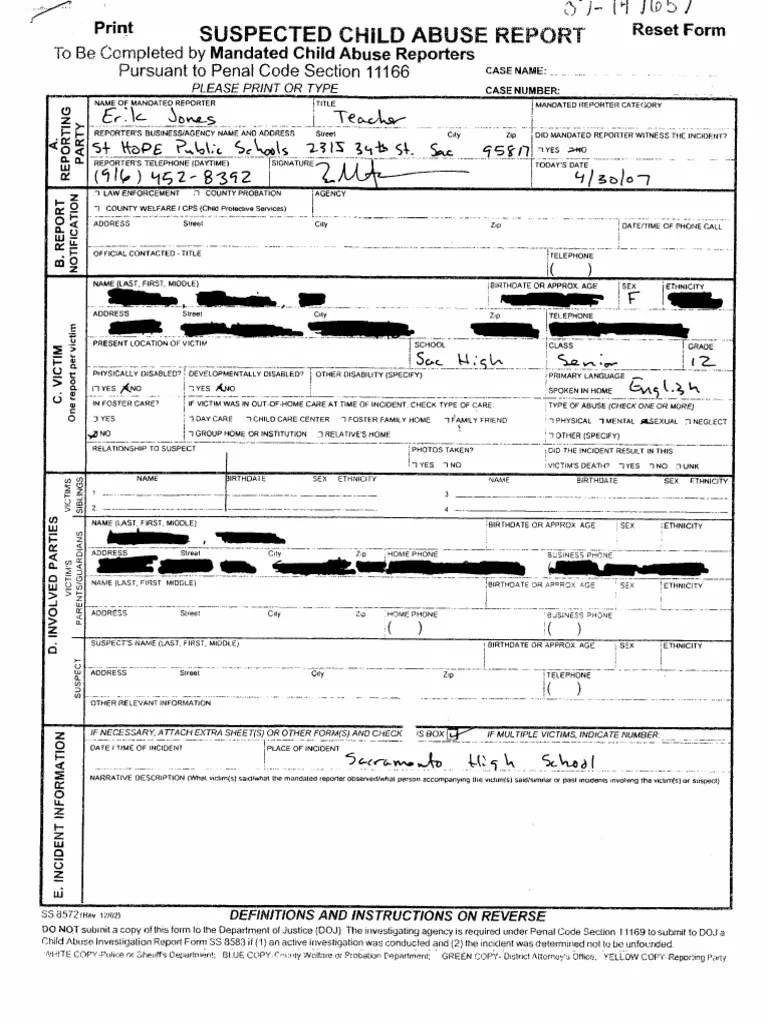 07-147657
Print SUSPECTED CHILD ABUSE REPORT Reset Form
To Be Completed by Mandated Child Abuse Reporters
Pursuant to Penal Code Section 11166 CASE NAME:
PLEASE PRINT OR TYPE CASE NUMBER:
A. REPORTING PARTY
NAME OF MANDATED REPORTER TITLE MANDATED REPORTER CATEGORY
Erik Jones Teacher
REPORTER'S BUSINESS/AGENCY NAME AND ADDRESS Street City Zip DID MANDATED REPORTER WITNESS THE INCIDENT?
St HOPE Public Schools 2315 34th St. Sac 95817 YES NO
REPORTER'S TELEPHONE (DAYTIME) SIGNATURE TODAY'S DATE
(916) 452-8392 4/30/07
B. REPORT NOTIFICATION
LAW ENFORCEMENT COUNTY PROBATION AGENCY
COUNTY WELFARE / CPS (Child Protective Services)
ADDRESS Street City Zip DATE/TIME OF PHONE CALL
OFFICIAL CONTACTED - TITLE TELEPHONE
( )
C. VICTIM
One report per victim
NAME (LAST, FIRST, MIDDLE) BIRTHDATE OR APPROX. AGE SEX ETHNICITY
F
ADDRESS Street City Zip TELEPHONE
PRESENT LOCATION OF VICTIM SCHOOL CLASS GRADE
Sac High Senior 12
PHYSICALLY DISABLED? DEVELOPMENTALLY DISABLED? OTHER DISABILITY (SPECIFY) PRIMARY LANGUAGE
YES NO YES NO SPOKEN IN HOME English
IN FOSTER CARE? IF VICTIM WAS IN OUT-OF-HOME CARE AT TIME OF INCIDENT, CHECK TYPE OF CARE: TYPE OF ABUSE (CHECK ONE OR MORE)
YES DAY CARE CHILD CARE CENTER FOSTER FAMILY HOME FAMILY FRIEND PHYSICAL MENTAL SEXUAL NEGLECT
NO GROUP HOME OR INSTITUTION RELATIVE'S HOME OTHER (SPECIFY)
RELATIONSHIP TO SUSPECT PHOTOS TAKEN? DID THE INCIDENT RESULT IN THIS
YES NO VICTIM'S DEATH? YES NO UNK
D. INVOLVED PARTIES
VICTIM'S SIBLINGS
NAME BIRTHDATE SEX ETHNICITY NAME BIRTHDATE SEX ETHNICITY
1. 3.
2. 4.
VICTIM'S PARENTS/GUARDIANS
NAME (LAST, FIRST, MIDDLE) BIRTHDATE OR APPROX AGE SEX ETHNICITY
ADDRESS Street City Zip HOME PHONE BUSINESS PHONE
NAME (LAST, FIRST, MIDDLE) BIRTHDATE OR APPROX. AGE SEX ETHNICITY
ADDRESS Street City Zip HOME PHONE BUSINESS PHONE
( ) ( )
SUSPECT
SUSPECT'S NAME (LAST, FIRST, MIDDLE) BIRTHDATE OR APPROX. AGE SEX ETHNICITY
ADDRESS Street City Zip TELEPHONE
( )
OTHER RELEVANT INFORMATION
E. INCIDENT INFORMATION
IF NECESSARY, ATTACH EXTRA SHEET(S) OR OTHER FORM(S) AND CHECK IS BOX IF MULTIPLE VICTIMS, INDICATE NUMBER:
DATE / TIME OF INCIDENT PLACE OF INCIDENT
Sacramento High School
NARRATIVE DESCRIPTION (What victim(s) said/what the mandated reporter observed/what person accompanying the victim(s) said/similar or past incidents involving the victim(s) or suspect)
SS 8572 (Rev 12/02) DEFINITIONS AND INSTRUCTIONS ON REVERSE
DO NOT submit a copy of this form to the Department of Justice (DOJ). The investigating agency is required under Penal Code Section 11169 to submit to DOJ a
Child Abuse Investigation Report Form SS 8583 if (1) an active investigation was conducted and (2) the incident was determined not to be unfounded.
WHITE COPY-Police or Sheriff's Department; BLUE COPY-County Welfare or Probation Department; GREEN COPY- District Attorney's Office; YELLOW COPY-Reporting Party